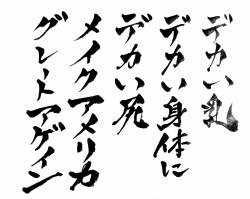 デカい乳
デカい身体に
デカい死
メイクアメリカ
グレートアゲイン